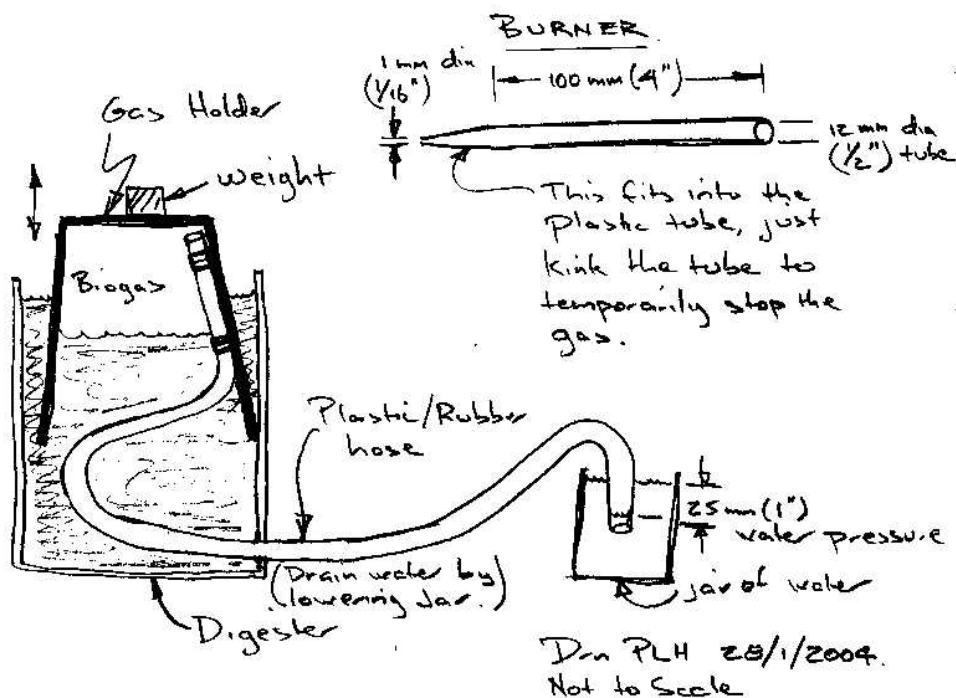 BURNER
1 mm dia
(1/16")
100 mm (4")
12 mm dia
(1/2") tube
This fits into the
plastic tube, just
kink the tube to
temporarily stop the
gas.
Gas Holder
weight
Biogas
Plastic/Rubber
hose
25 mm (1")
water pressure
jar of water
(Drain water by
lowering Jar.)
Digester
Drn PLH 28/1/2004.
Not to Scale